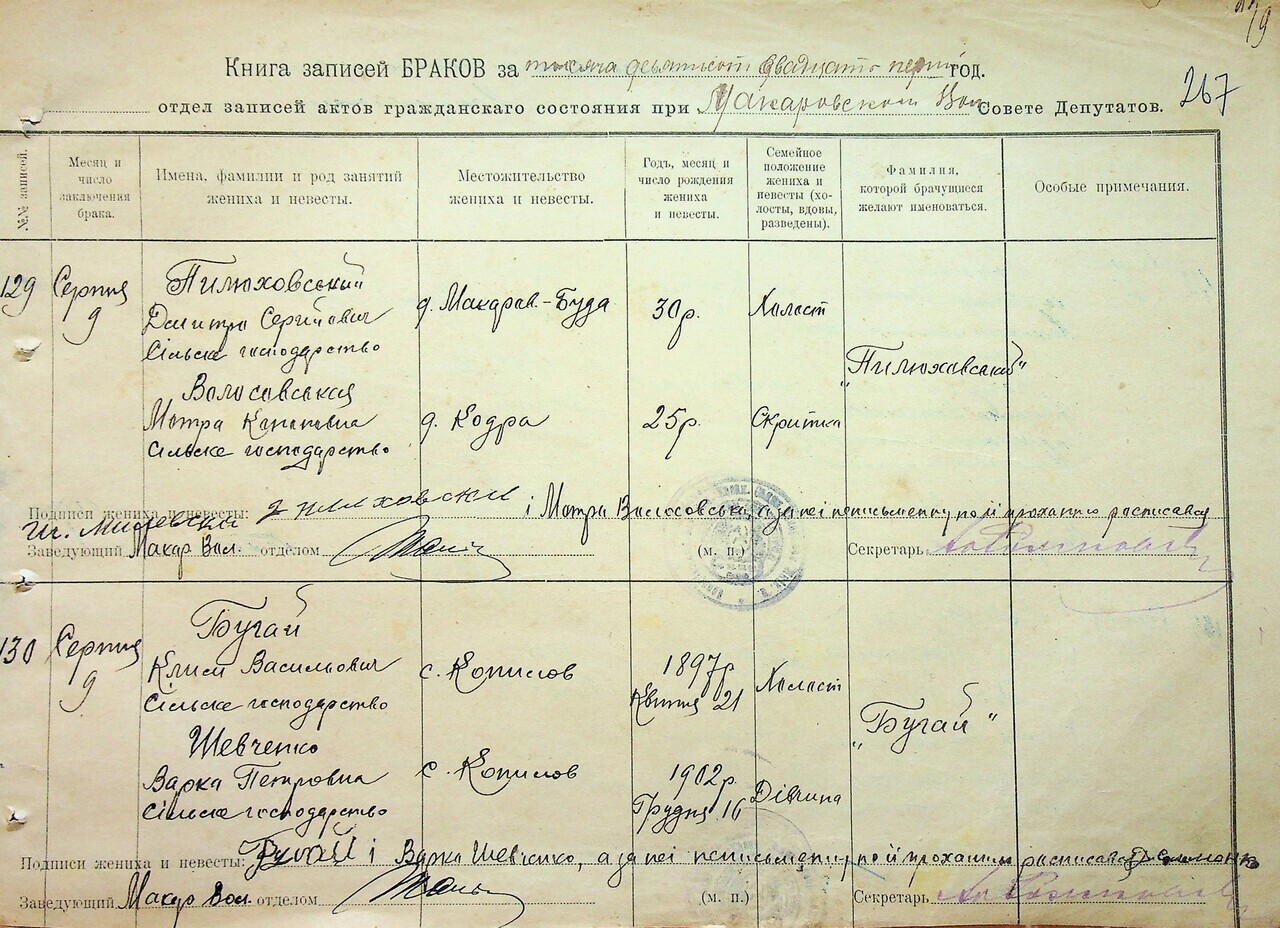 79
267
Книга записей БРАКОВ за тысяча девятьсот двадцать первый год.
отдел записей актов гражданскаго состояния при Макаровском Вол. Совете Депутатов.
№№ записей.
Месяц и число заключения брака.
Имена, фамилии и род занятий жениха и невесты.
Местожительство жениха и невесты.
Годъ, месяц и число рождения жениха и невесты.
Семейное положение жениха и невесты (холосты, вдовы, разведены).
Фамилия, которой брачущиеся желают именоваться.
Особые примечания.
129 Серпня 9
Пилюховський
Дмитро Сергійович д. Макаров.-Буда 30р. Холост
Сільске господарство
„Пилюховський"
Волосовськая
Мотра Кононовна д. Кодра 25р.
Сільске господарство
Подписи жениха и невесты: і Мотра Волосовська а за неі неписьменну по ій проханню росписався
Заведующий Макар Вол. отделом (м. п.) Секретарь
130 Серпня 9
Бугай
Клим Васильович с. Копилов 1897р. Квітня 21 Холост
Сільске господарство
„Бугай"
Шевченко
Варка Петровна с. Копилов 1902р. Грудня 16 Дівчина
Сільске господарство
Подписи жениха и невесты: Бугай і Варка Шевченко, а за неі неписьменну по ій проханню росписався
Заведующий Макар Вол. отделом (м. п.) Секретарь